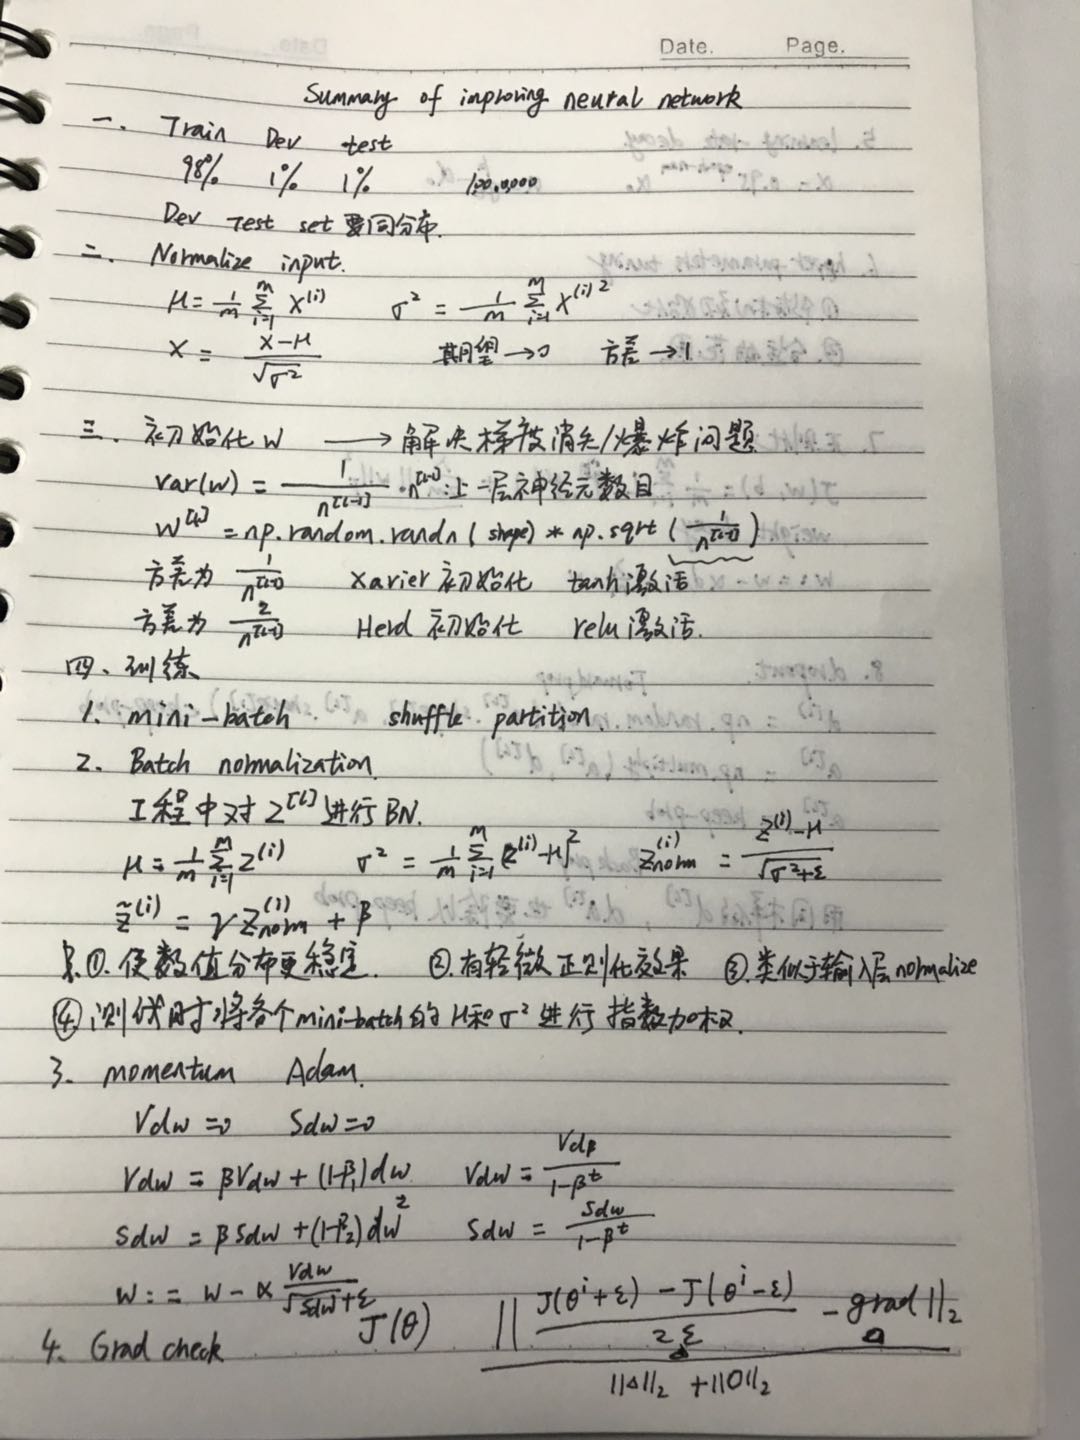 Date. Page.
Summary of improving neural network
一. Train Dev test
98% 1% 1% 1,000,000
Dev Test set 要同分布.
二. Normalize input.
μ = 1/m ∑_{i=1}^{m} X^{(i)} σ² = 1/m ∑_{i=1}^{m} X^{(i)2}
X = (X-μ)/√σ² 期望→0 方差→1
三. 初始化 W ⟶ 解决梯度消失/爆炸问题
var(w) = 1/n^{[l-1]} · n^{[l-1]}:上一层神经元数目
W^{[l]} = np.random.randn(shape) * np.sqrt(1/n^{[l-1]})
方差为 1/n^{[l-1]} Xavier 初始化 tanh激活
方差为 2/n^{[l-1]} Herd 初始化 relu激活.
四. 训练
1. mini-batch shuffle partition.
2. Batch normalization.
工程中对 Z^{[l]} 进行BN.
μ = 1/m ∑_{i=1}^{m} Z^{(i)} σ² = 1/m ∑_{i=1}^{m} (Z^{(i)}-μ)² Z_{norm}^{(i)} = (Z^{(i)}-μ)/√(σ²+ε)
z̃^{(i)} = γ Z_{norm}^{(i)} + β
①. 使数值分布更稳定. ②.有轻微正则化效果 ③.类似于输入层normalize
④测试时将各个mini-batch的μ和σ²进行指数加权.
3. momentum Adam.
Vdw = 0 Sdw = 0
Vdw = βVdw + (1-β₁)dw Vdw = Vdβ/(1-β^t)
Sdw = βSdw + (1-β₂)dw² Sdw = Sdw/(1-β^t)
W := W - α Vdw/(√Sdw+ε)
4. Grad check J(θ) ||(J(θ^i+ε) - J(θ^i-ε))/2ε - grad||₂
||Δ||₂ + ||O||₂